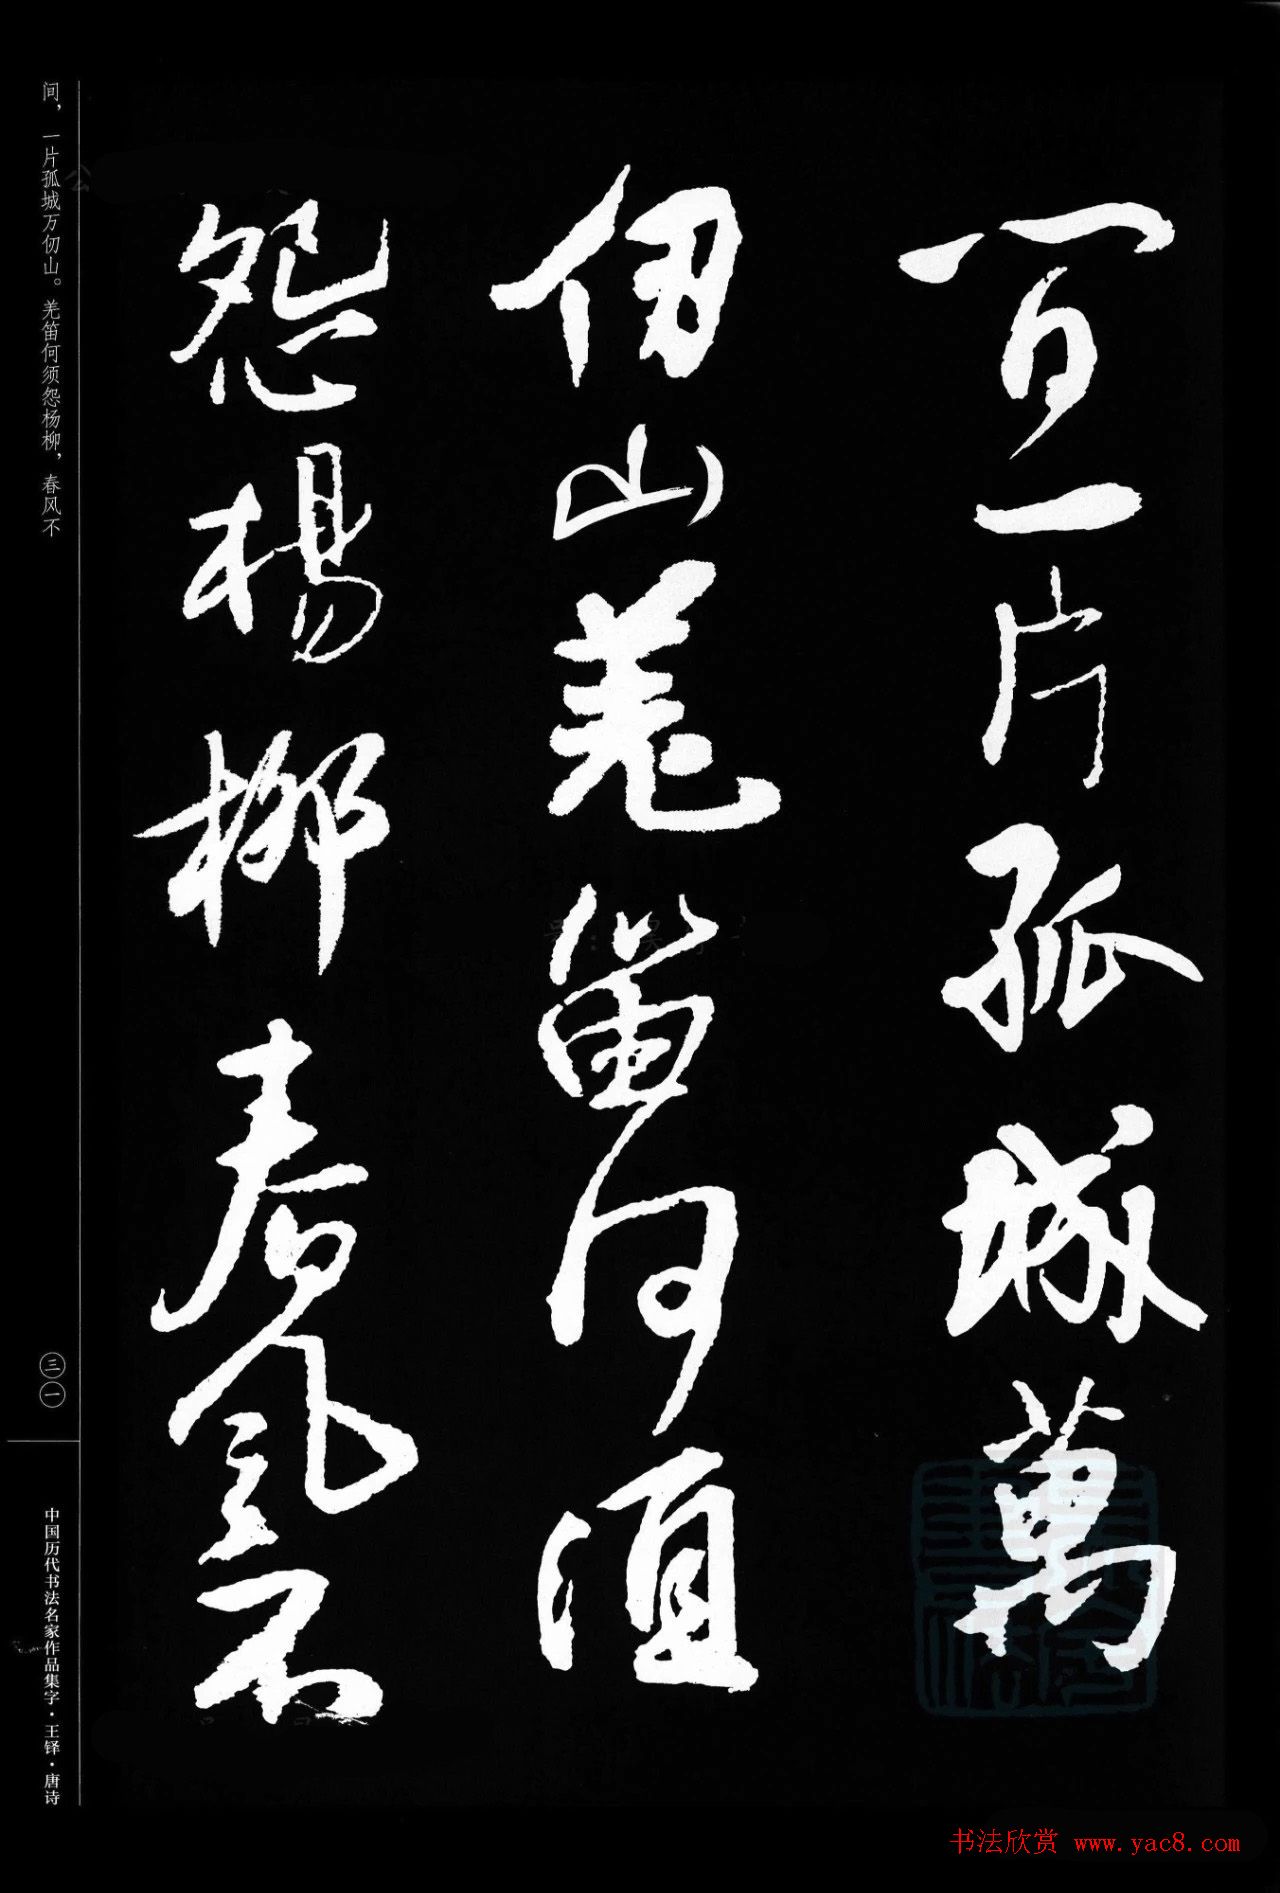 间一片孤城萬
仞山羌笛何須
怨楊柳春風不
间，一片孤城万仞山。羌笛何须怨杨柳，春风不
三一
中国历代书法名家作品集字·王铎·唐诗
书法欣赏 www.yac8.com